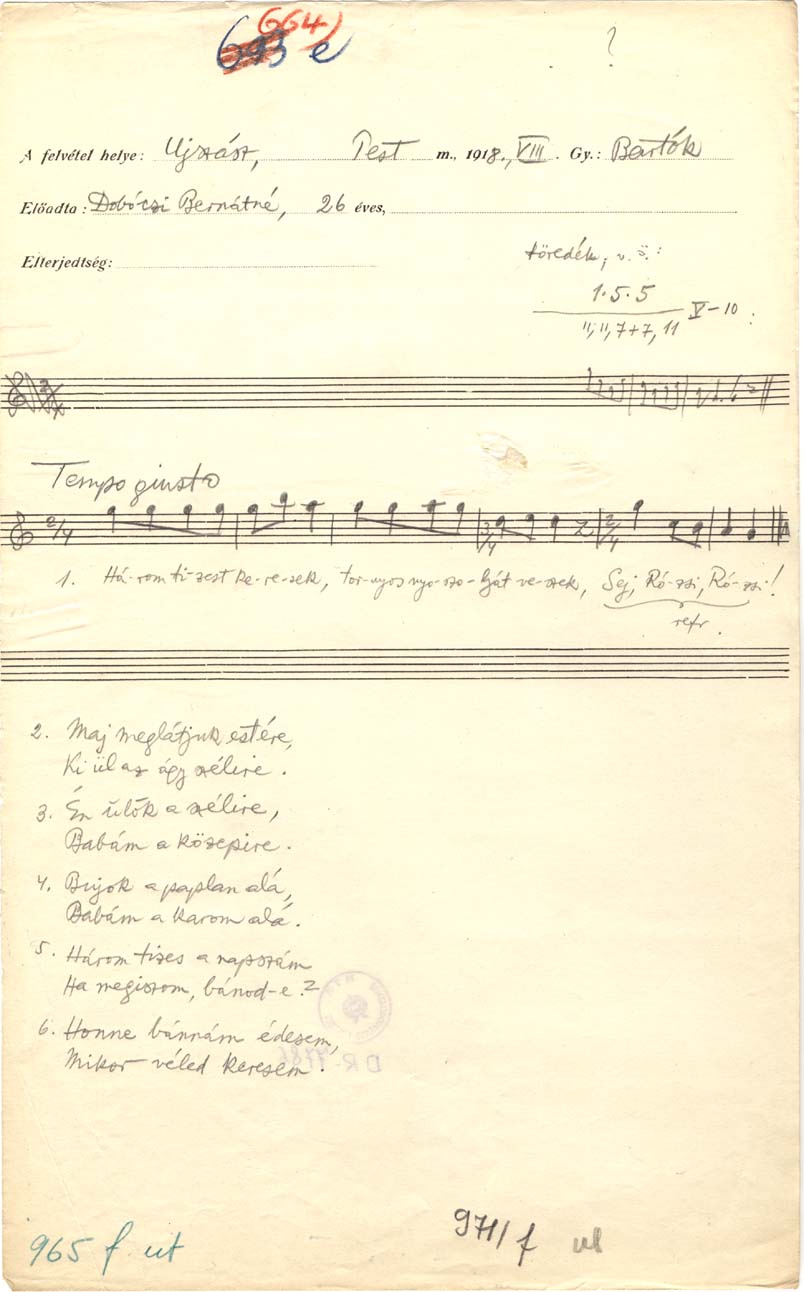 664) e
?
A felvétel helye: Ujszász, Pest m., 1918., VIII. Gy.: Bartók
Előadta: Dobóczi Bernátné, 26 éves,
Elterjedtség:
töredék, v. ö.:
1·5·5
11, 11, 7+7, 11 V–10
Tempo giusto
2/4 3/4 2/4
1. Há-rom ti-zest ke-re-sek, tor-nyos nyo-szo-lyát ve-szek, Sej, Ró-zsi, Ró-zsi!
refr.
2. Maj meglátjuk estére,
Ki ül az ágy szélire.
3. Én ülök a szélire,
Babám a közepire.
4. Bujok a paplan alá,
Babám a karom alá.
5. Három tizes a napszám
Ha megiszom, bánod-e?
6. Honne bánnám édesem,
Mikor véled keresem.
965 f. ut
971/f ul